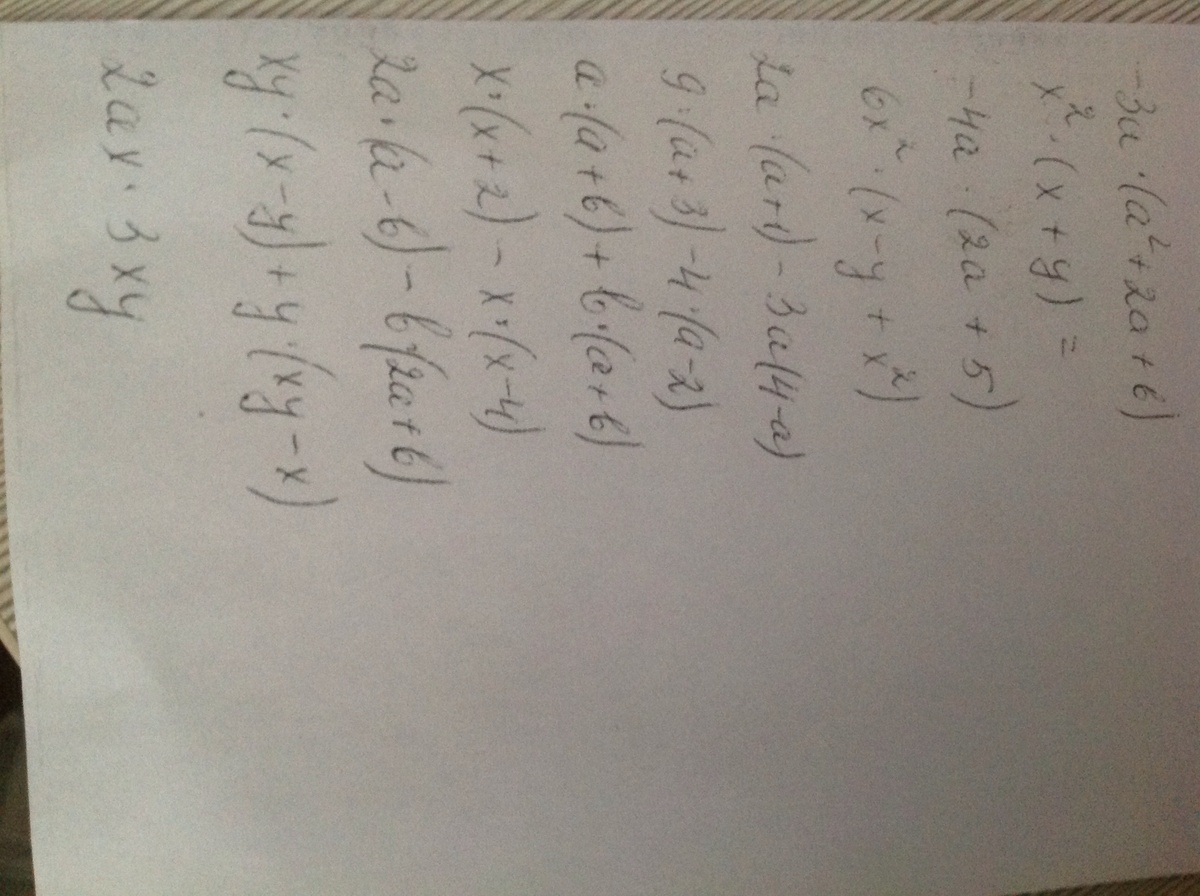 -3a · (a² + 2a + b)
x² · (x + y) =
-4a · (2a + 5)
6x² · (x - y + x²)
2a · (a+1) - 3a(4-a)
9 · (a+3) - 4 · (a-2)
a · (a + b) + b · (a + b)
x · (x + 2) - x · (x - 4)
2a · (a - b) - b · (2a + b)
xy · (x - y) + y · (xy - x)
2ax · 3xy